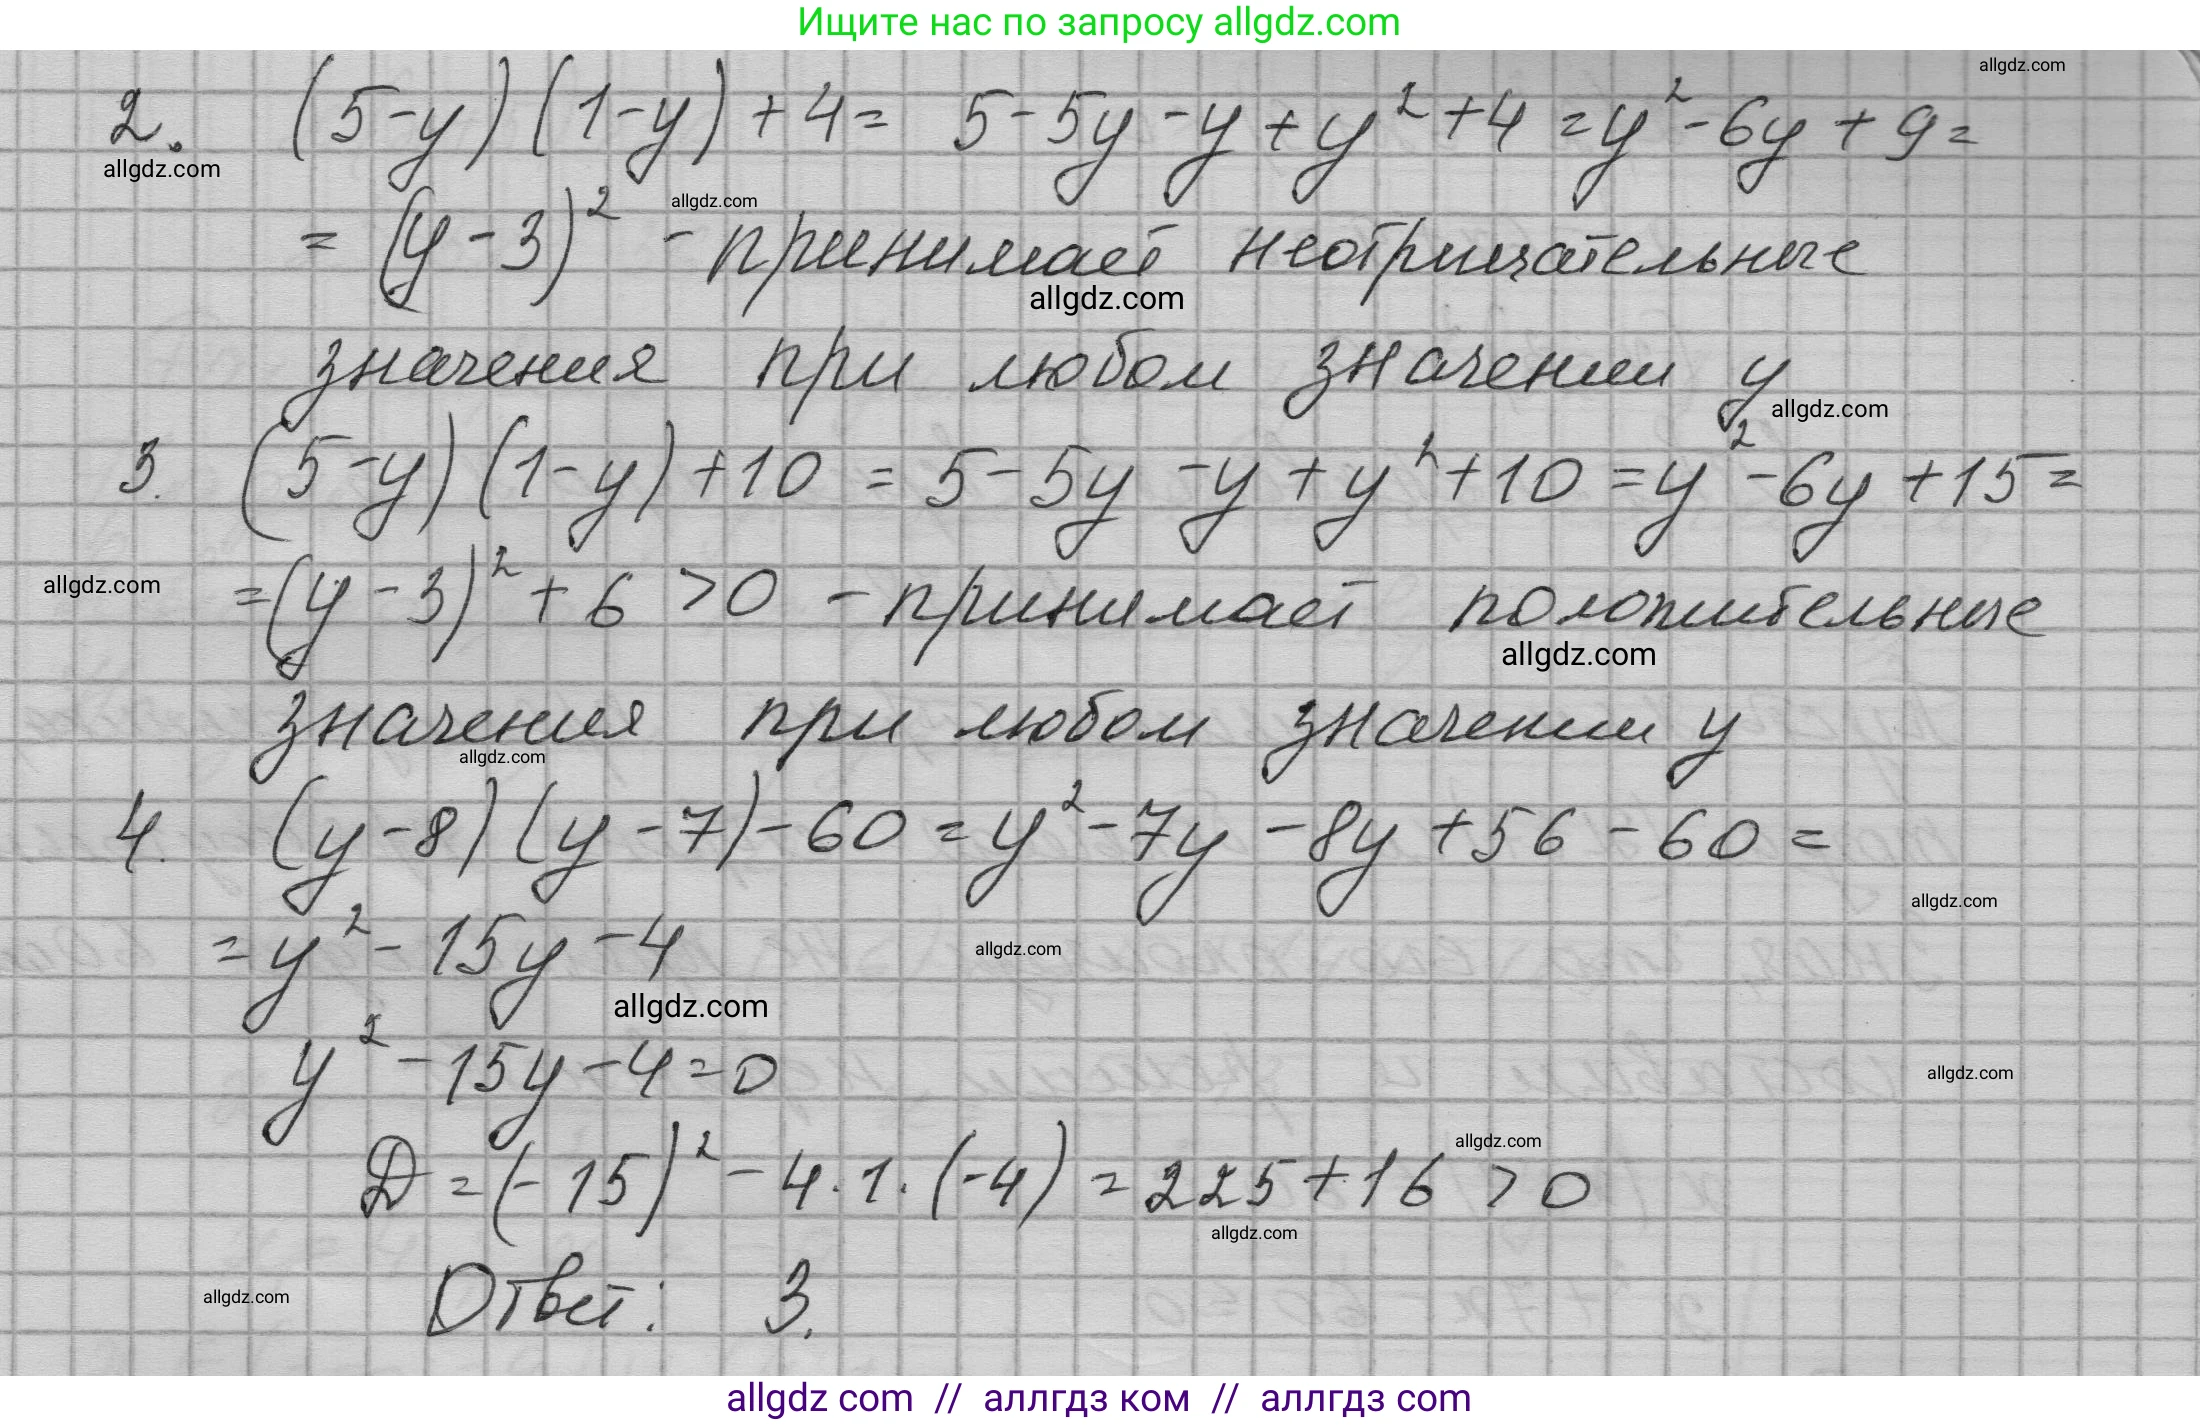 Ищите нас по запросу allgdz.com
allgdz.com
2. (5-y)(1-y)+4= 5-5y-y+y²+4=y²-6y+9=
allgdz.com
=(y-3)² - принимает неотрицательные
allgdz.com
allgdz.com
значения при любом значении y
allgdz.com
3. (5-y)(1-y)+10=5-5y-y+y²+10=y²-6y+15=
=(y-3)²+6>0 - принимает положительные
allgdz.com
allgdz.com
значения при любом значении y
allgdz.com
4. (y-8)(y-7)-60=y²-7y-8y+56-60=
allgdz.com
=y²-15y-4
allgdz.com
allgdz.com
y²-15y-4=0
allgdz.com
allgdz.com
D=(-15)²-4·1·(-4)=225+16>0
allgdz.com
allgdz.com
Ответ: 3.
allgdz com // аллгдз ком // аллгдз com